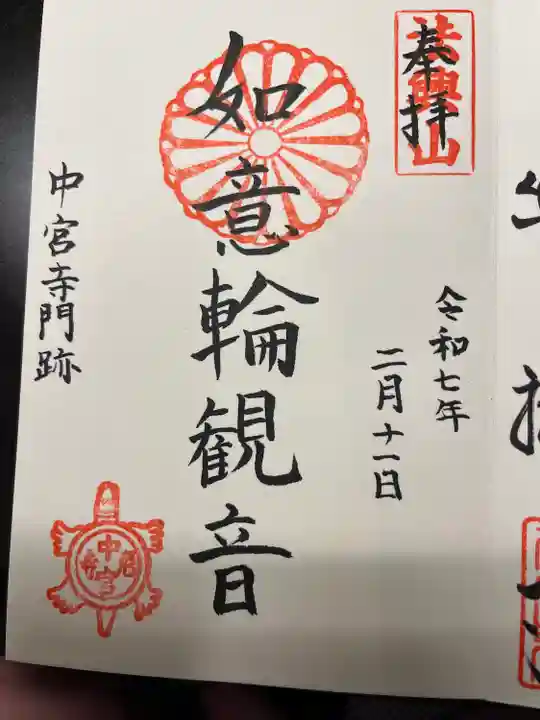 奉拝
法興山
令和七年
二月十一日
如意輪観音
中宮寺門跡